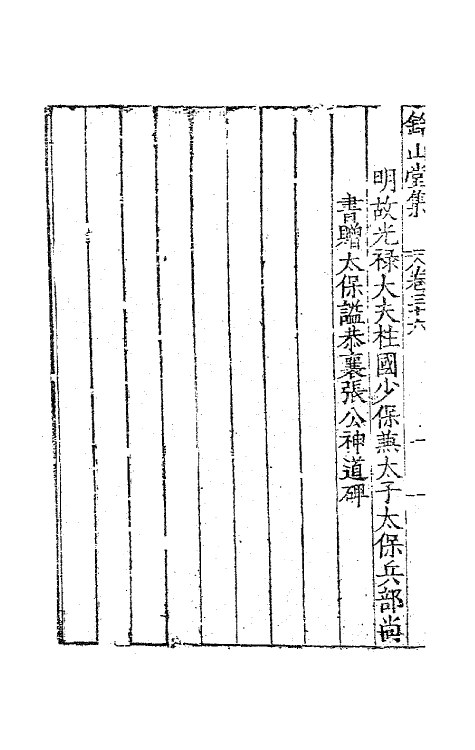 鈐山堂集 卷三十六 一
明故光禄大夫柱國少保兼太子太保兵部尚
書贈太保謚恭襄張公神道碑